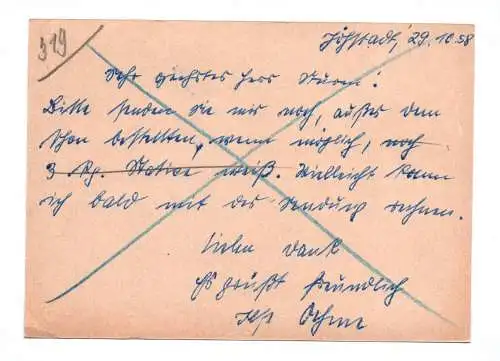 319
Jöhstadt, 29.10.58
Sehr geehrter Herr Sturm!
Bitte senden Sie mir noch, außer dem
schon bestellten, wenn möglich, noch
3 Kg. Statice weiß. Vielleicht kann
ich bald mit der Sendung rechnen.
Vielen Dank
Es grüßt freundlich
Oehme